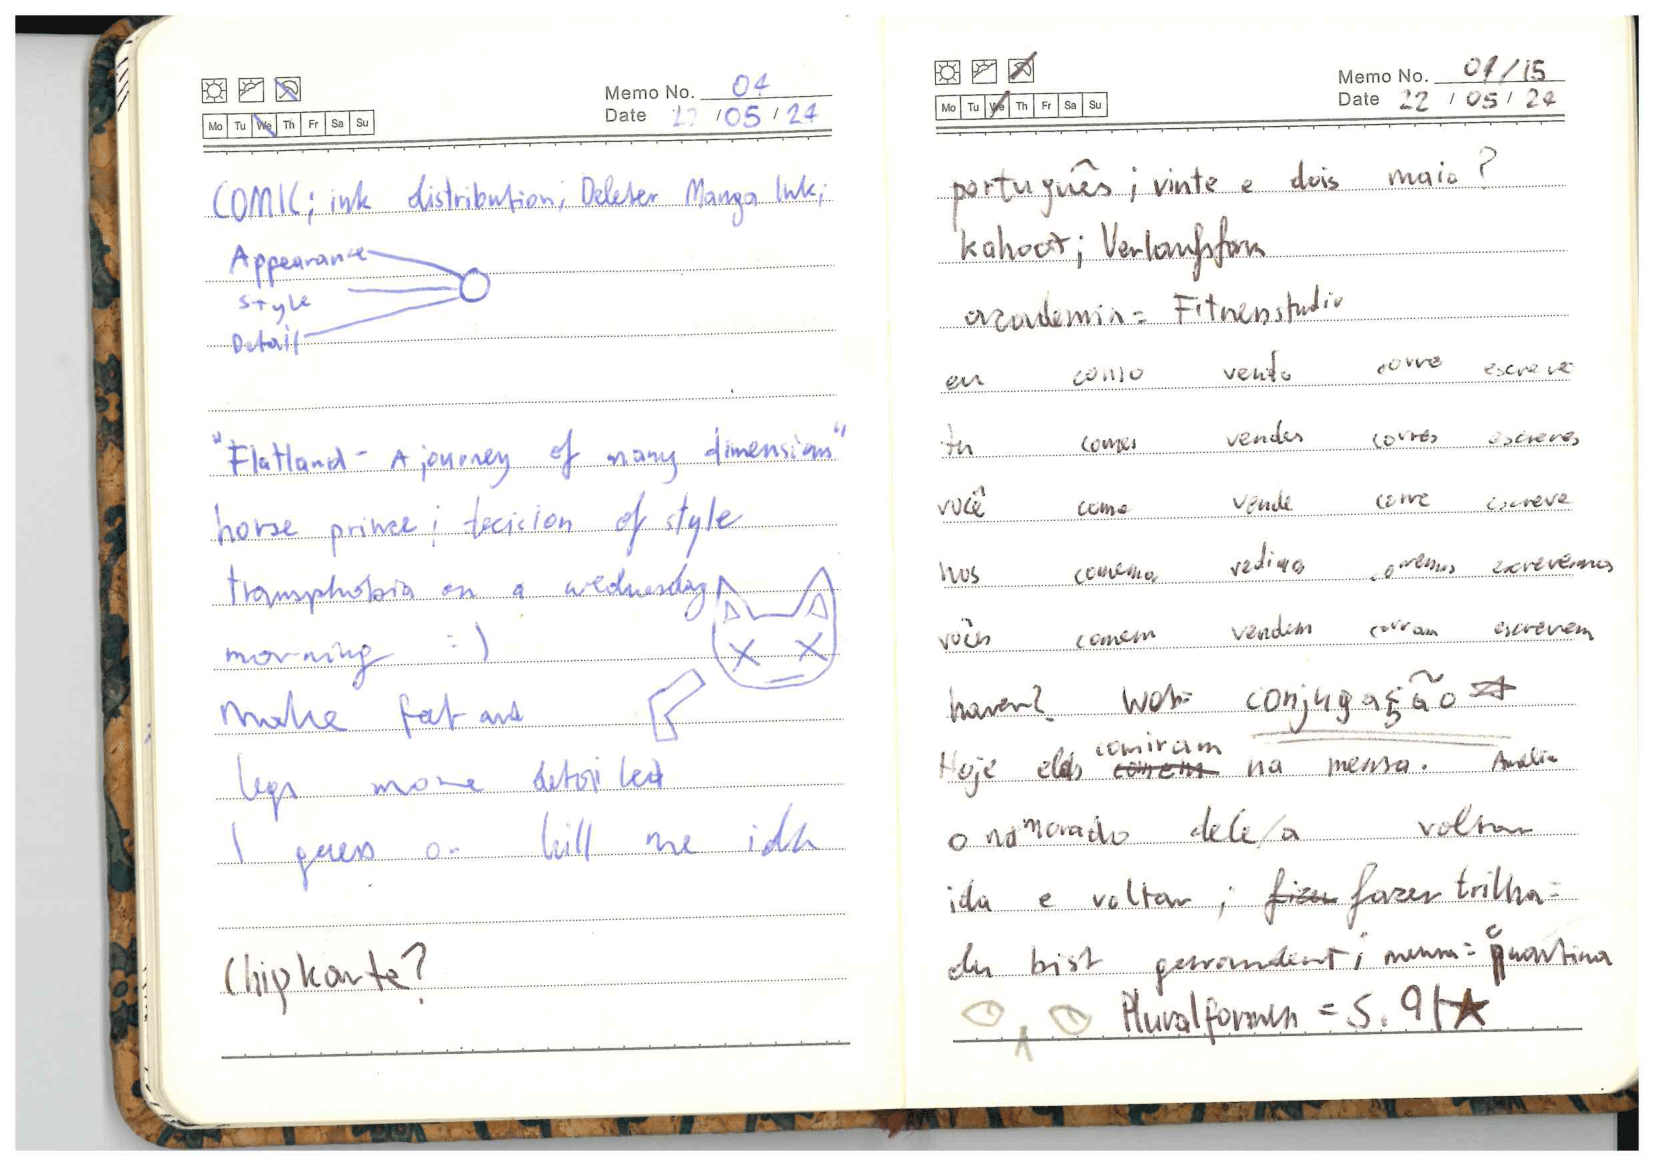 Memo No. 04
Mo Tu We Th Fr Sa Su
Date 22 /05 / 24
COMIC; ink distribution; Deleter Manga Ink;
Appearance
Style
Detail
"Flatland - A journey of many dimensions"
horse prince; decision of style
transphobia on a wednesday
morning :)
make fat and
legs more detailed
I guess or kill me idk
Chipkarte?
Memo No. 01/15
Mo Tu We Th Fr Sa Su
Date 22 / 05 / 24
português; vinte e dois maio?
kahoot; Verlaufsform
academia = Fitnesstudio
eu como vendo corre escreve
tu comes vendes corres escreves
você come vende corre escreve
nos comemos vedimo corremos escrevemos
vocês comem vendem corram escrevem
haven? Wob= conjugação
Hoje eles comiram comem na mensa.
o namorado dele/a voltar
ida e voltar; fazer trilha =
du bist ; mensa = quantina
Pluralformen = S. 91 ★